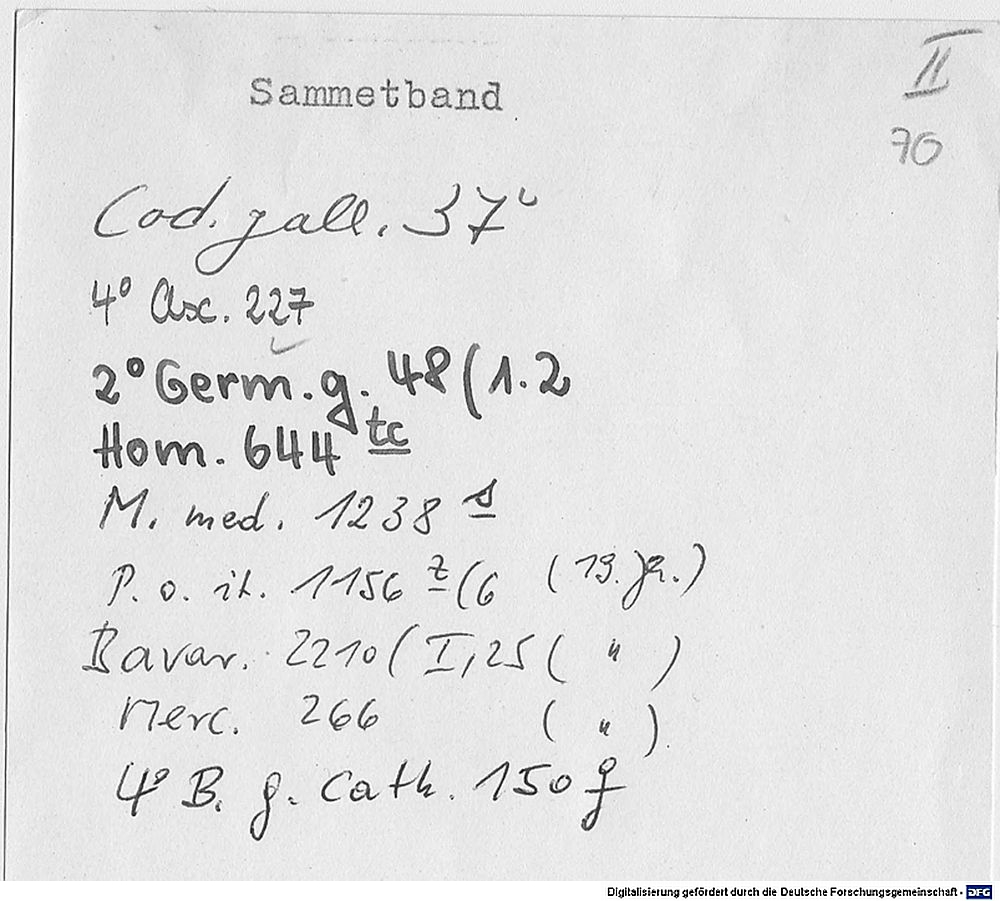 II
Sammetband
70
Cod. gall. 37
4° Asc. 227
2° Germ. g. 48 (1.2
Hom. 644 tc
M. med. 1238 s
P. o. it. 1156 z (6 (19. Jh.)
Bavar. 2210 ( I, 25 ( " )
Merc. 266 ( " ).
4° B. g. cath. 150 f
Digitalisierung gefördert durch die Deutsche Forschungsgemeinschaft - DFG